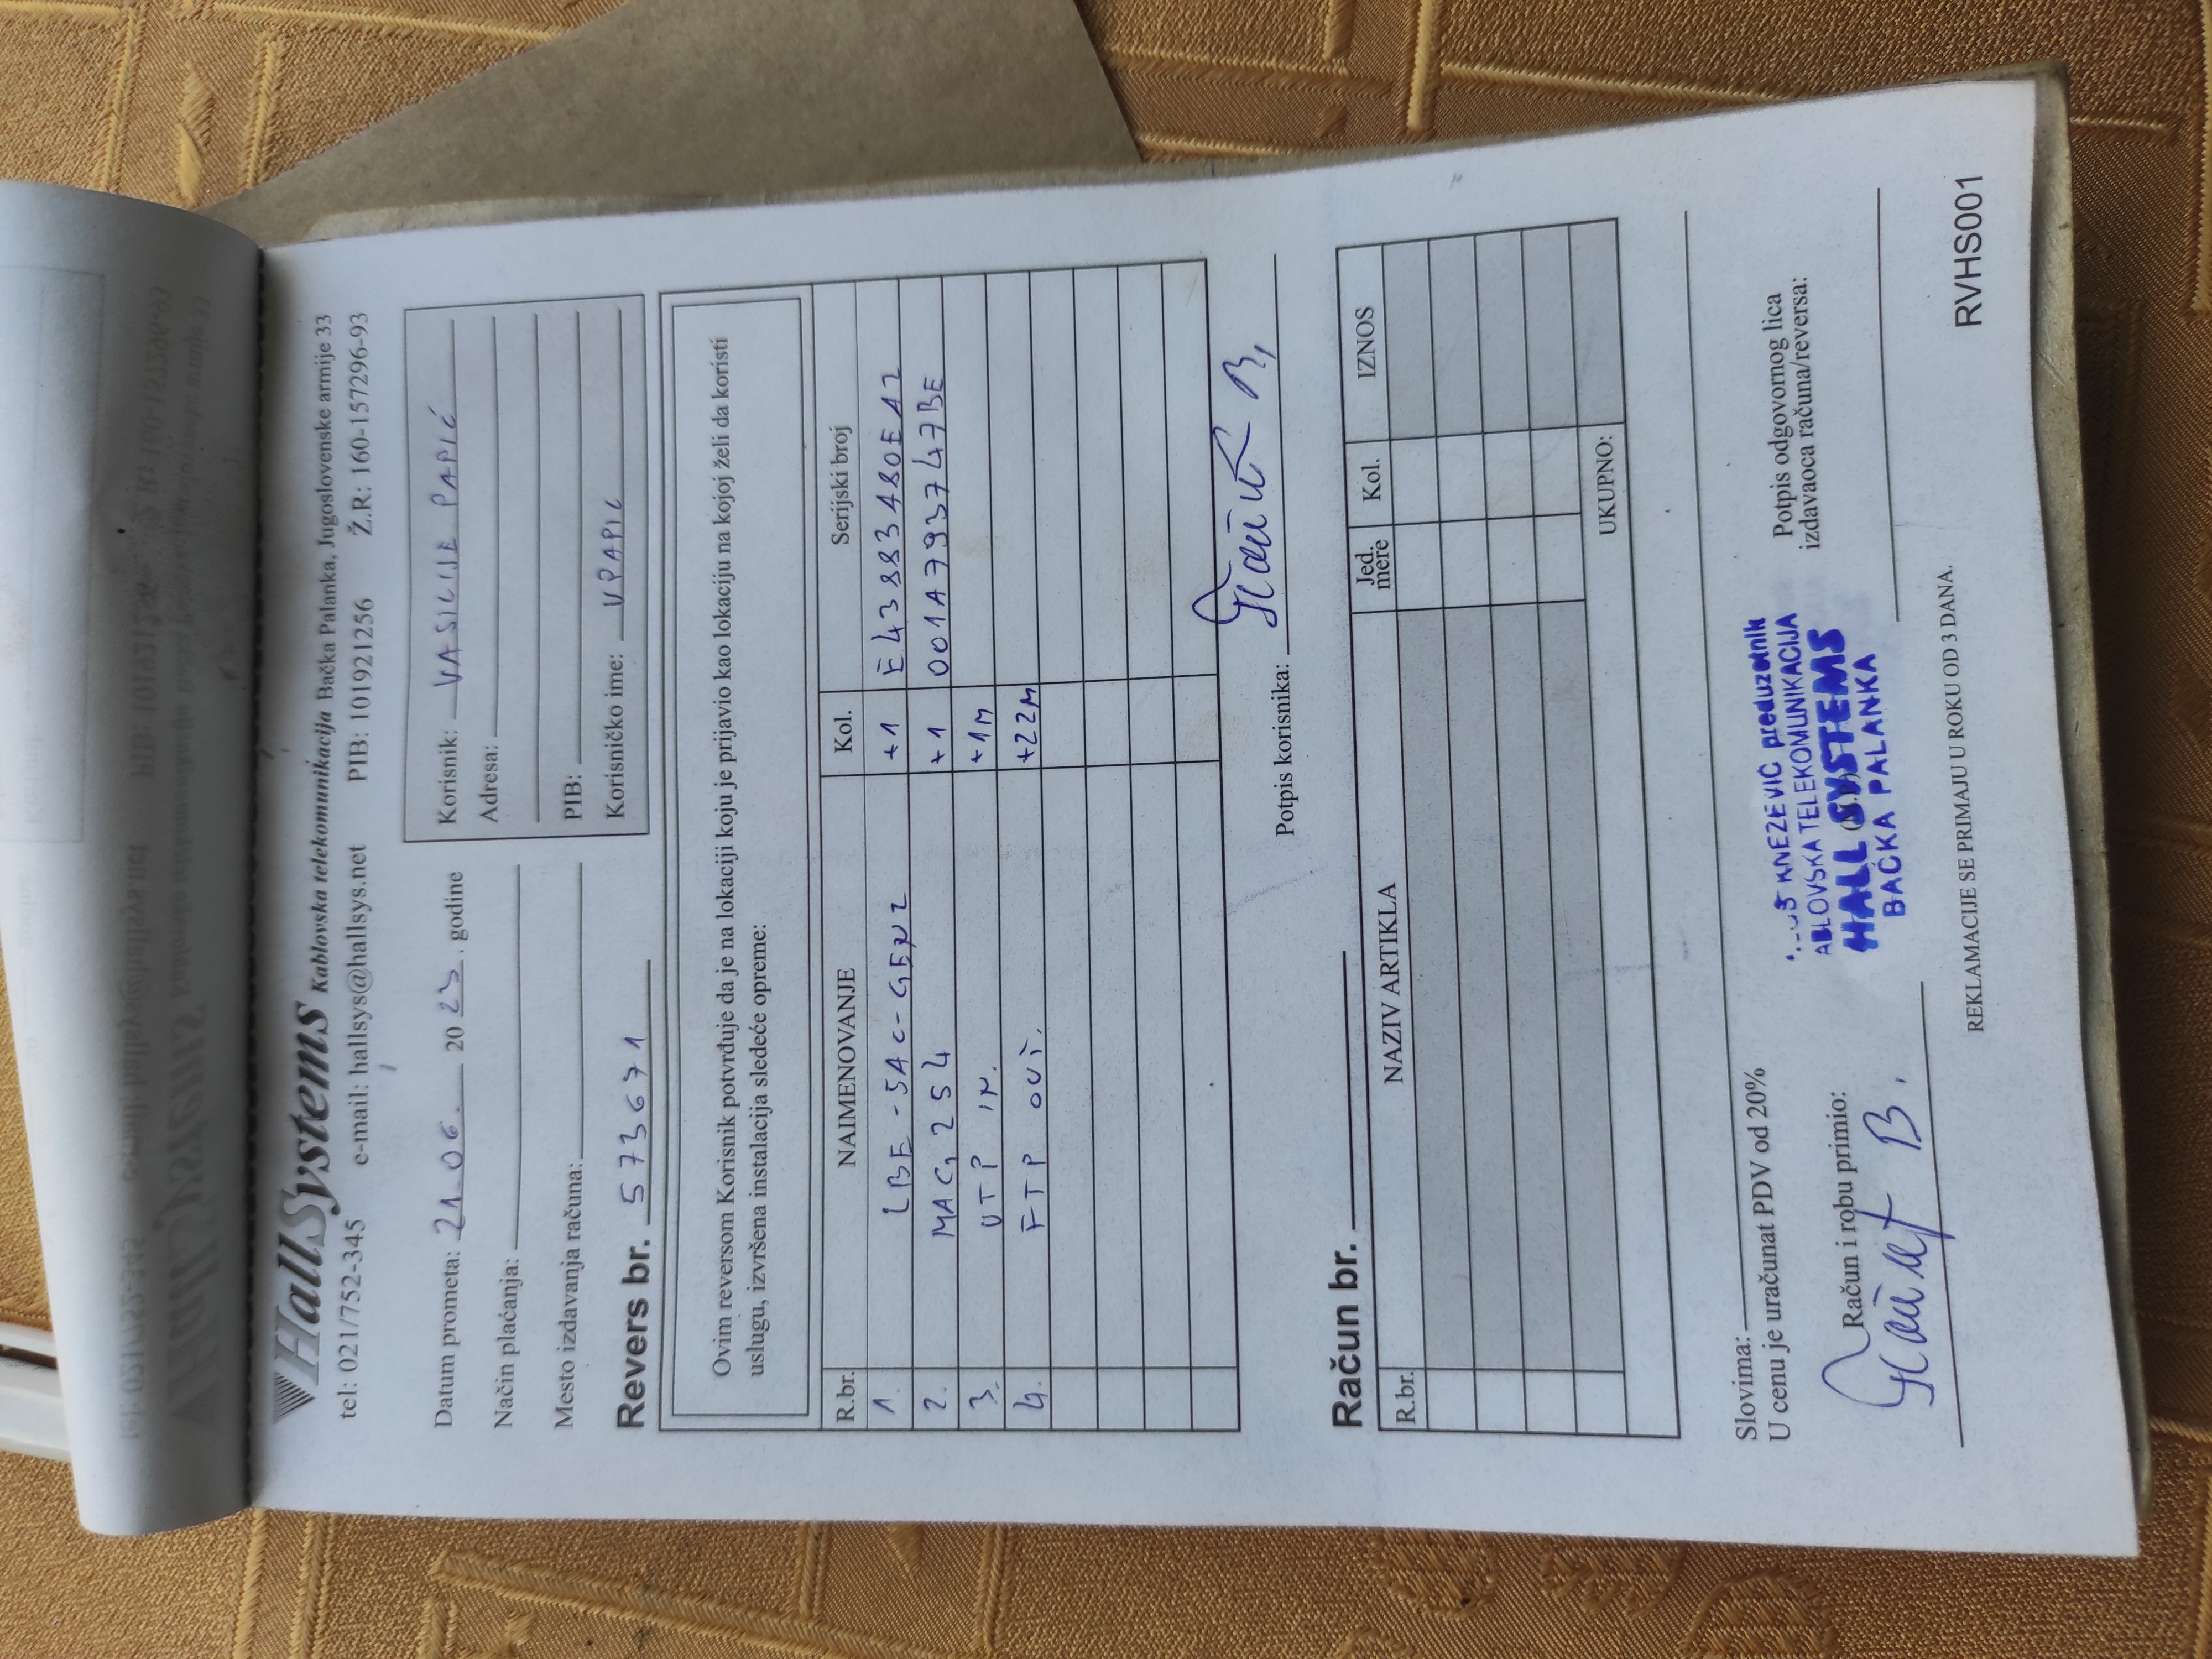 HallSystems Kablovska telekomunikacija Bačka Palanka, Jugoslovenske armije 33
tel: 021/752-345 e-mail: hallsys@hallsys.net PIB: 101921256 Ž.R: 160-157296-93
Datum prometa: 21.06. 2023. godine
Način plaćanja:
Mesto izdavanja računa:
Korisnik: VASILIJE PAPIĆ
Adresa:
PIB:
Korisničko ime: VPAPIC
Revers br. 573671
Ovim reversom Korisnik potvrđuje da je na lokaciji koju je prijavio kao lokaciju na kojoj želi da koristi
uslugu, izvršena instalacija sledeće opreme:
R.br. NAIMENOVANJE Kol. Serijski broj
1. LBE-5AC-GEN2 +1 E43883480EA2
2. MAG 254 +1 001A793747BE
3. UTP IN. +1M
4. FTP OUT. +22M
Potpis korisnika:
Račun br.
R.br. NAZIV ARTIKLA Jed. mere Kol. IZNOS
UKUPNO:
Slovima:
U cenu je uračunat PDV od 20%
Račun i robu primio:
KNEZEVIĆ preduzetnik
ABLOVSKA TELEKOMUNIKACIJA
HALL SYSTEMS
BAČKA PALANKA
Potpis odgovornog lica
izdavaoca računa/reversa:
REKLAMACIJE SE PRIMAJU U ROKU OD 3 DANA.
RVHS001